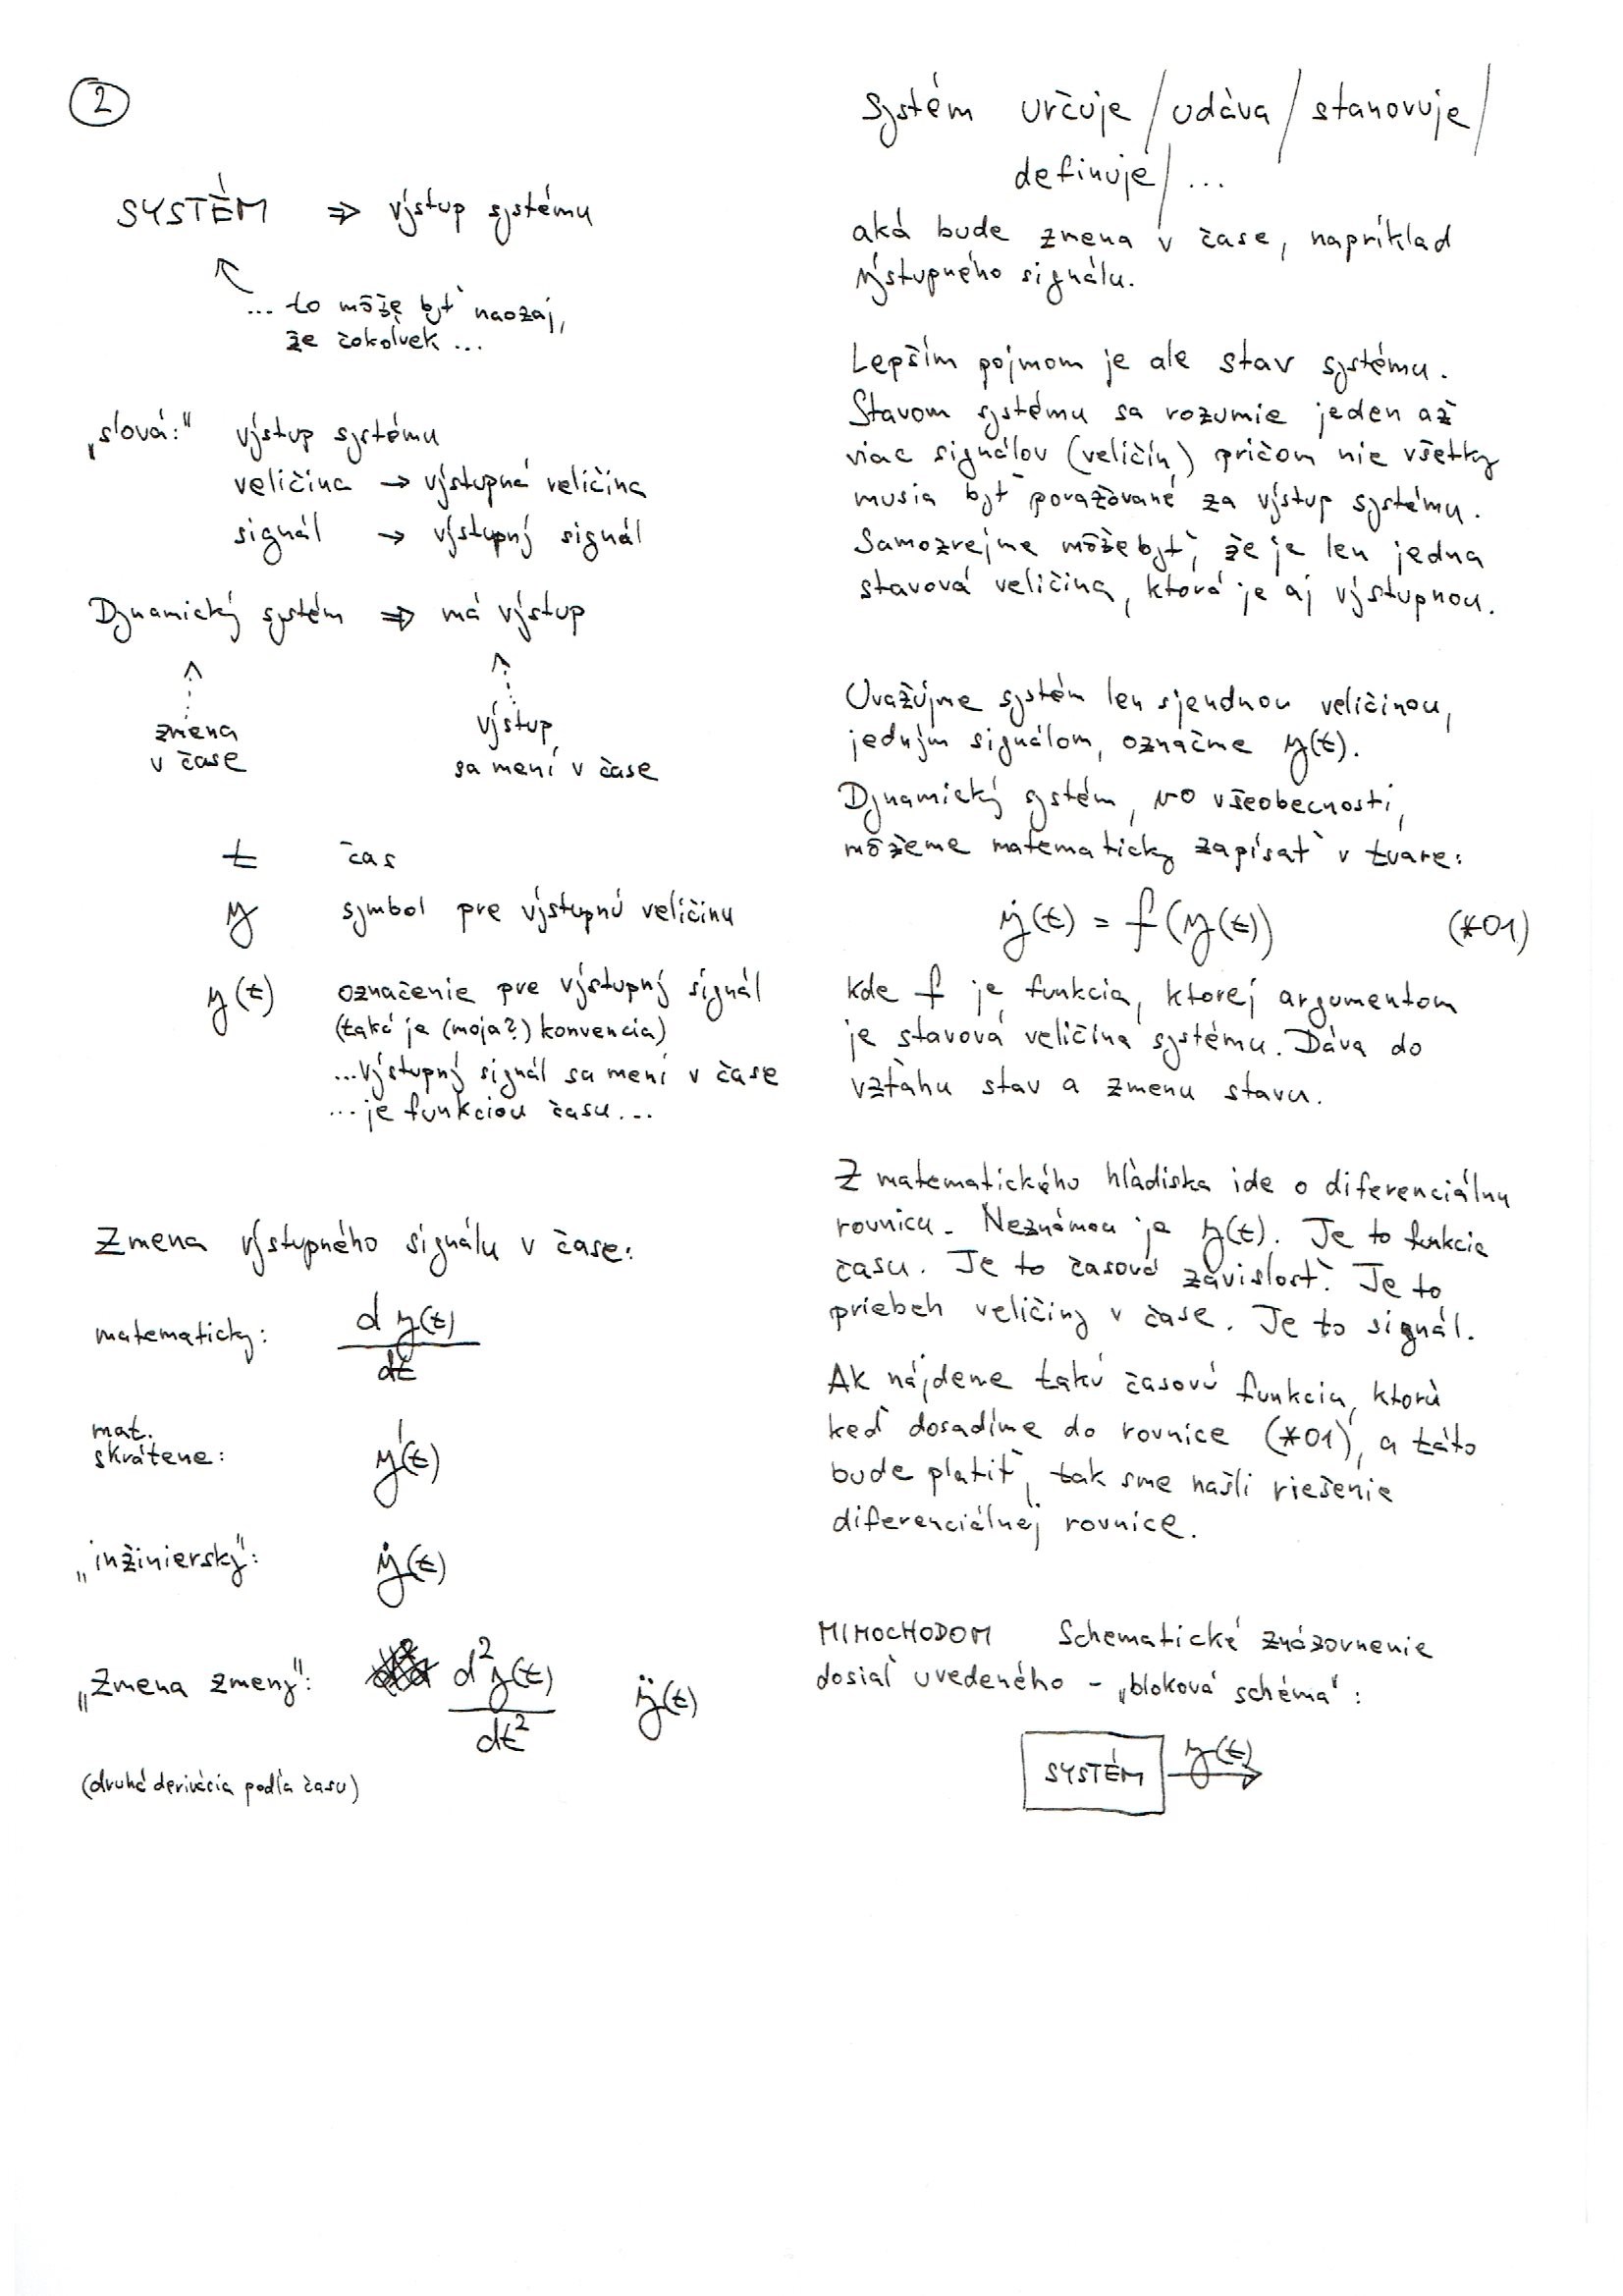 2
SYSTÉM ⇒ výstup systému
... to môže byť naozaj,
že čokoľvek ...
„slová:" výstup systému
veličina → výstupná veličina
signál → výstupný signál
Dynamický systém ⇒ má výstup
zmena
v čase
výstup
sa mení v čase
t čas
y symbol pre výstupnú veličinu
y(t) označenie pre výstupný signál
(taká je (moja?) konvencia)
...výstupný signál sa mení v čase
...je funkciou času...
Zmena výstupného signálu v čase:
matematicky: d y(t)
dt
mat.
skrátene: y'(t)
„inžiniersky": ẏ(t)
„Zmena zmeny": d²y(t) ÿ(t)
dt²
(druhá derivácia podľa času)
Systém určuje / udáva / stanovuje /
definuje / ...
aká bude zmena v čase, napríklad
výstupného signálu.
Lepším pojmom je ale stav systému.
Stavom systému sa rozumie jeden až
viac signálov (veličín) pričom nie všetky
musia byť považované za výstup systému.
Samozrejme môže byť, že je len jedna
stavová veličina, ktorá je aj výstupnou.
Uvažujme systém len sjendnou veličinou,
jedným signálom, označme y(t).
Dynamický systém, vo všeobecnosti,
môžeme matematicky zapísať v tvare:
ẏ(t) = f(y(t)) (*01)
kde f je funkcia, ktorej argumentom
je stavová veličina systému. Dáva do
vzťahu stav a zmenu stavu.
Z matematického hľadiska ide o diferenciálnu
rovnicu. Neznámou je y(t). Je to funkcia
času. Je to časová závislosť. Je to
priebeh veličiny v čase. Je to signál.
Ak nájdeme takú časovú funkciu, ktorú
keď dosadíme do rovnice (*01), a táto
bude platiť, tak sme našli riešenie
diferenciálnej rovnice.
MIMOCHODOM Schematické znázornenie
dosiaľ uvedeného - „bloková schéma":
SYSTÉM y(t)